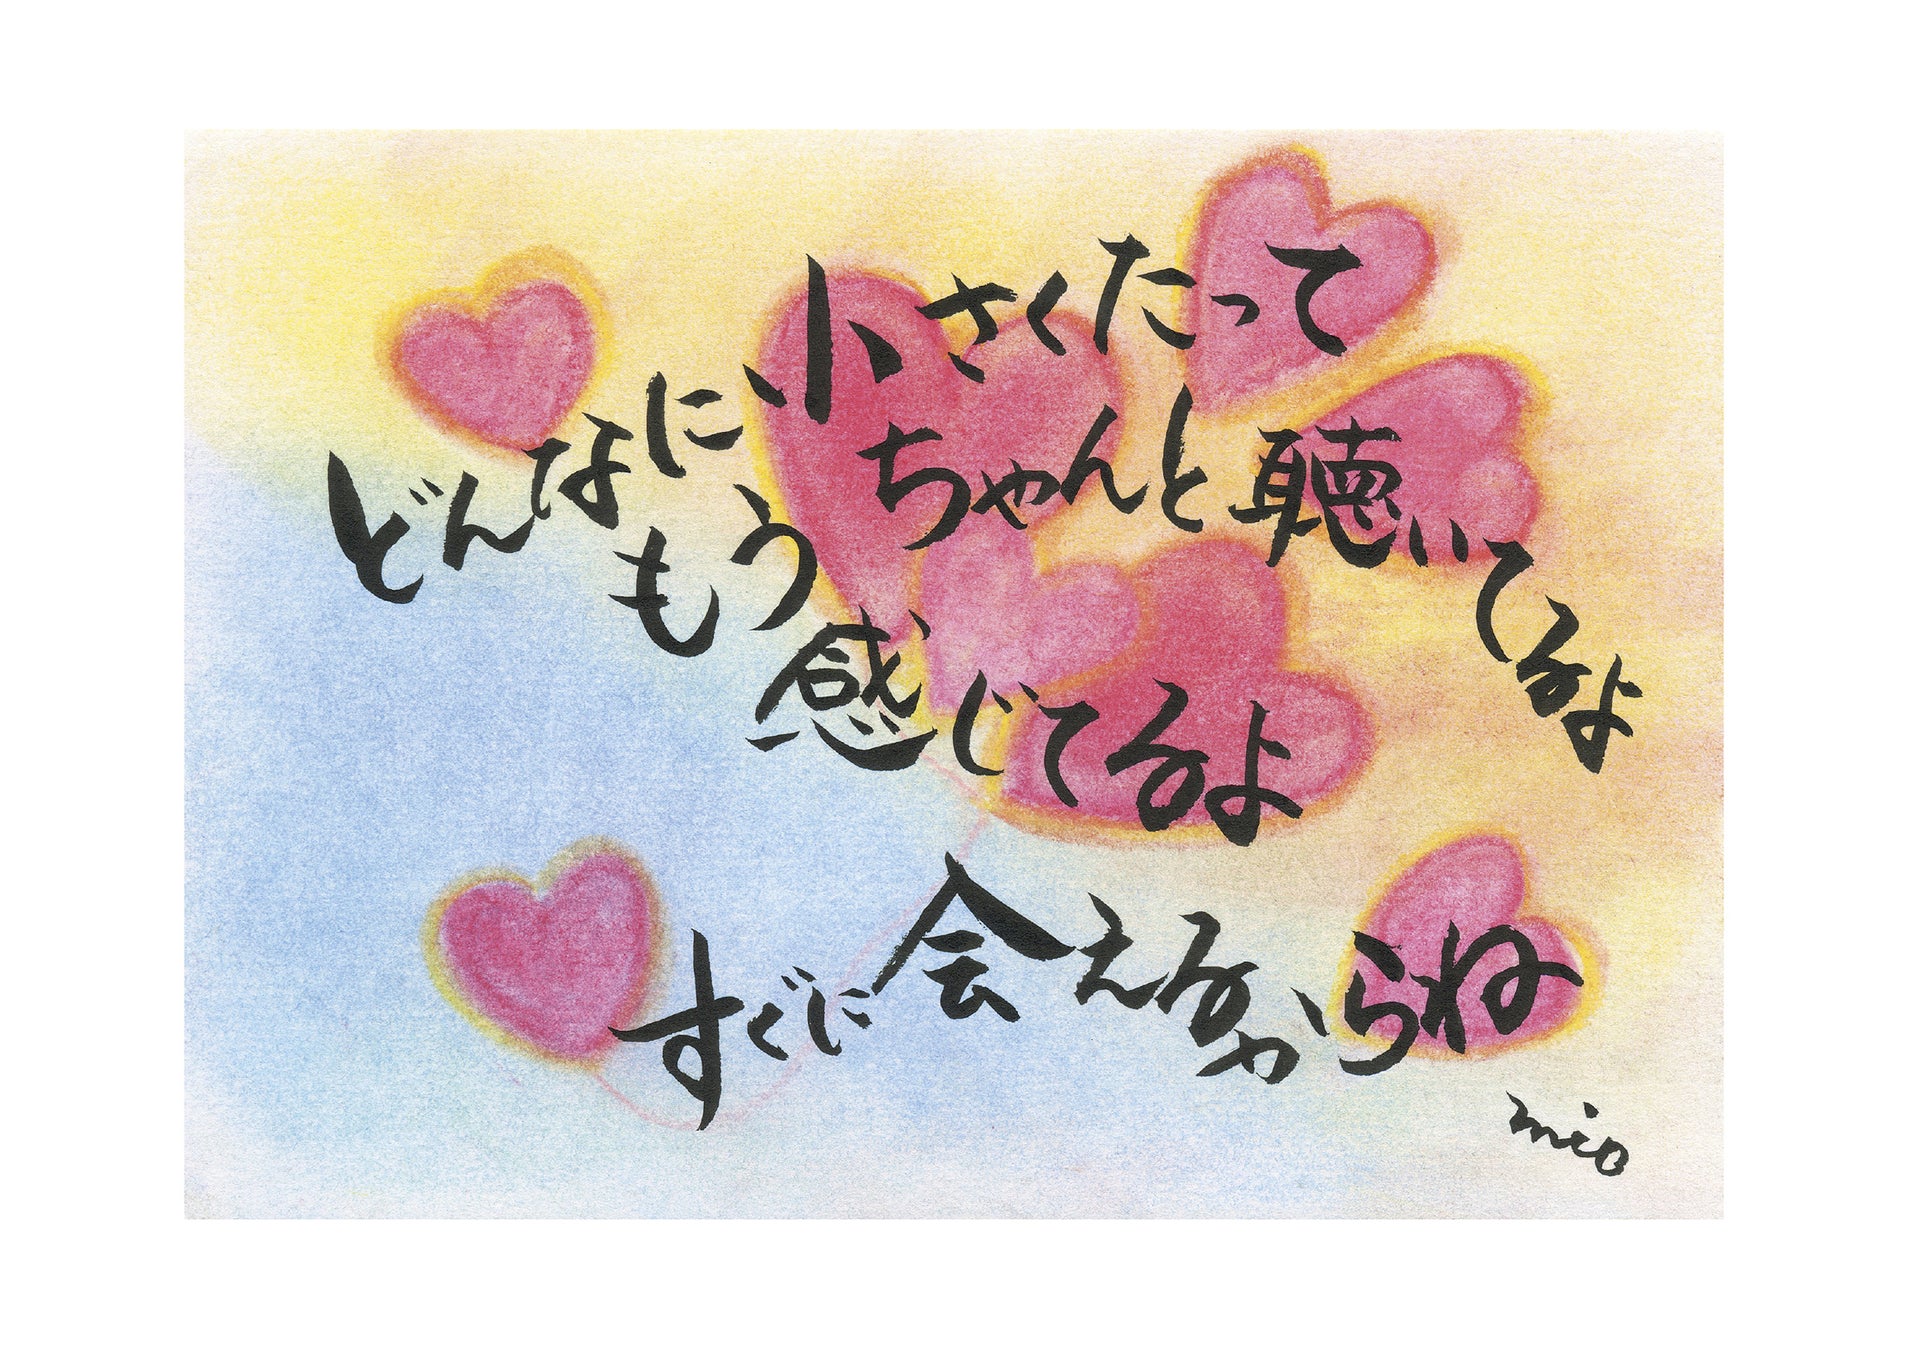 どんなに小さくたって
ちゃんと聴いてるよ
もう感じてるよ
すぐに会えるからね
mio